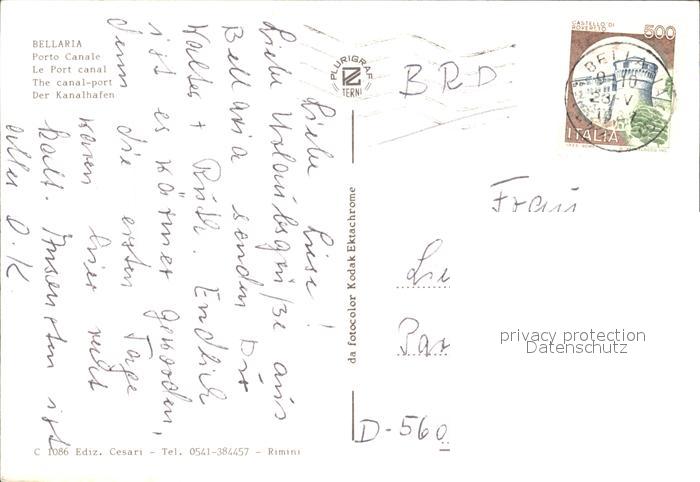 BELLARIA
Porto Canale
Le Port canal
The canal-port
Der Kanalhafen
Liebe Lisa!
Liebe Urlaubsgrüße aus
Bellaria senden Dir
Walter + Ruth. Endlich
ist es wärmer geworden,
denn die ersten Tage
waren hier recht
kalt. Ansonsten ist
alles O.K.
C 1086 Ediz. Cesari - Tel. 0541-384457 - Rimini
PLURIGRAF
TERNI
da fotocolor Kodak Ektachrome
BRD
CASTELLO DI
ROVERETO
500
ITALIA
BELLARIA
Frau
Lie
Par
D-560
privacy protection
Datenschutz